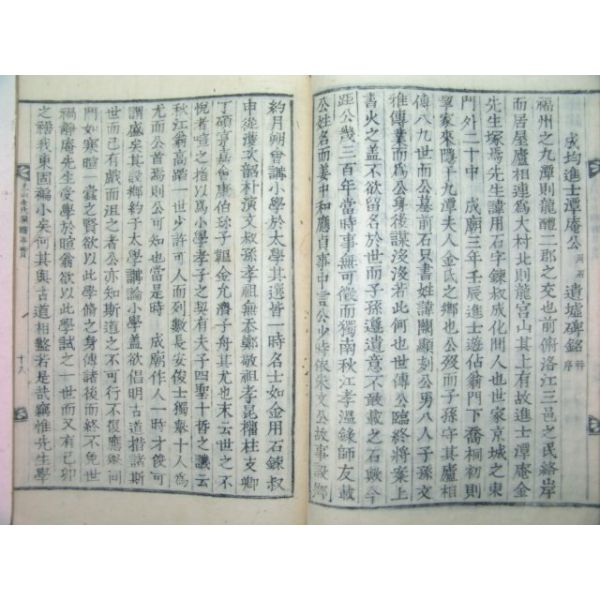 成均進士潭庵公用石遺墟碑銘幷序
福州之九潭則龍醴二郡之交也前俯洛江三邑之民絡岸
而居屋廬相連為大村北則龍宮山其下有故進士潭庵金
先生塚焉先生諱用石字鍊叔成化間人也世家京城之東
門外二十中 成廟三年壬辰進士遊佔翁門下喬桐初則
挈家來隱于九潭夫人金氏之鄉也公歿而子孫守其廬相
傳八九世而公墓前石只書姓諱闕顯刻公男八人子孫文
雅傳業而於公身後謀沒沒若此何也世傳公臨終將案上
書火之盖不欲留名於世而子孫遵遺意不敢載之石歟今
距公幾三百年當時事無可徵而獨南秋江孝溫錄師友載
公姓名而姜中和應貞事中言公少時依朱文公故事設鄉
約月朔會講小學於太學其選皆一時名士如金用石鍊叔
申從濩次韶朴演文叔孫孝祖無忝鄭敬祖孝昆權柱支卿
丁碩亨嘉會康伯珍子韞金允濟子舟其尤也末云世之不
悅者喧之指以為小學孝子之契有夫子四聖十哲之譏云
秋江翁高蹈一世少許可人而列數長安俊士獨舉十人為
尤而公首焉則公可知也當是時 成廟作人一時才俊可
謂盛矣其設鄉約于太學講論小學盖欲倡明古道楷諸斯
世而已有戲而沮之者公亦知斯道之不可行不復應舉阿
門如寒暄一蠹之賢欲以此學脩之身傳諸後而終不免世
禍靜庵先生受學於暄翁欲以此學試之一世而又有己卯
之禍我東固褊小矣何其與古道相盭若是哉竊惟先生學
十八